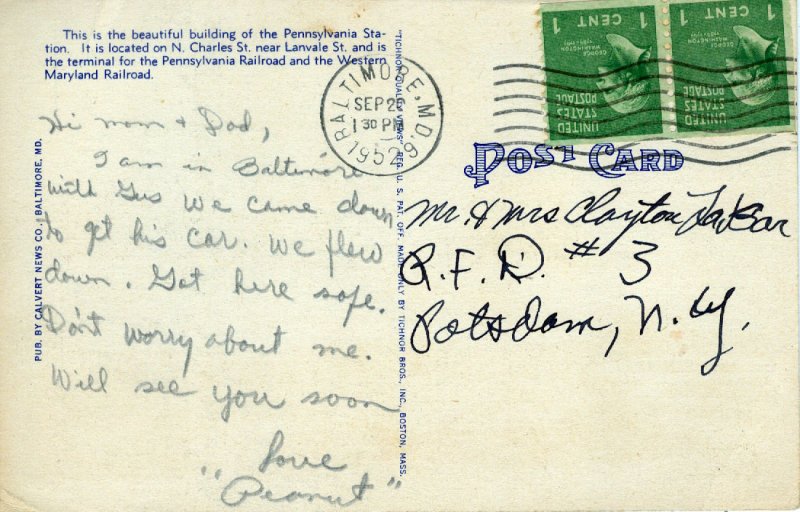 This is the beautiful building of the Pennsylvania Sta-
tion. It is located on N. Charles St. near Lanvale St. and is
the terminal for the Pennsylvania Railroad and the Western
Maryland Railroad.
Hi mom & Dad,
I am in Baltimore
with Gus We came down
to get his car. We flew
down. Got here safe.
Don't worry about me.
Will see you soon
Love
"Peanut"
PUB. BY CALVERT NEWS CO., BALTIMORE, MD.
"TICHNOR QUALITY VIEWS" REG. U. S. PAT. OFF. MADE ONLY BY TICHNOR BROS., INC., BOSTON, MASS.
BALTIMORE, MD. 9
SEP 26
1 30 PM
1952
UNITED
STATES
POSTAGE
GEORGE
WASHINGTON
1 CENT 1
UNITED
STATES
POSTAGE
GEORGE
WASHINGTON
1 CENT 1
POST CARD
Mr. & Mrs Clayton
R.F.D. # 3
Potsdam, N.Y.